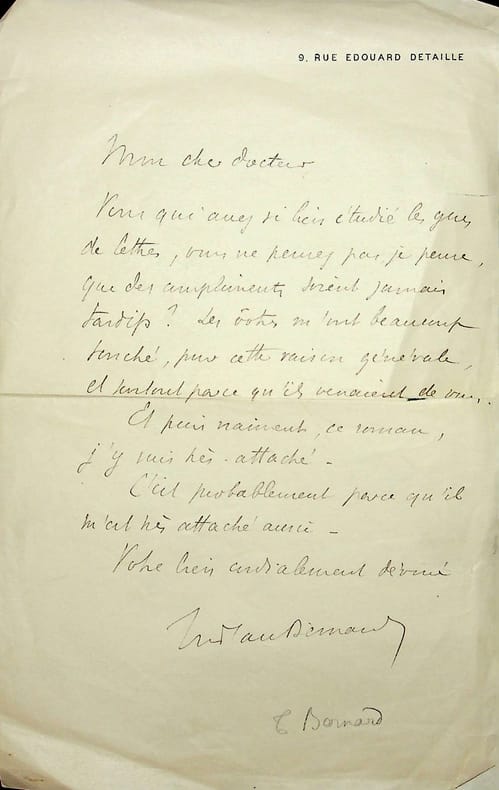 9. RUE EDOUARD DETAILLE
Mon cher docteur
Vous qui avez si bien étudié les gens
de lettres, vous ne pensez pas je pense,
que des compliments soient jamais
tardifs ? Les vôtres m'ont beaucoup
touché, pour cette raison générale,
et surtout parce qu'ils venaient de vous.
Et puis vraiment, ce roman,
j'y suis très attaché -
C'est probablement parce qu'il
m'est très attaché aussi -
Votre bien cordialement dévoué
Tristan Bernard
T Bernard